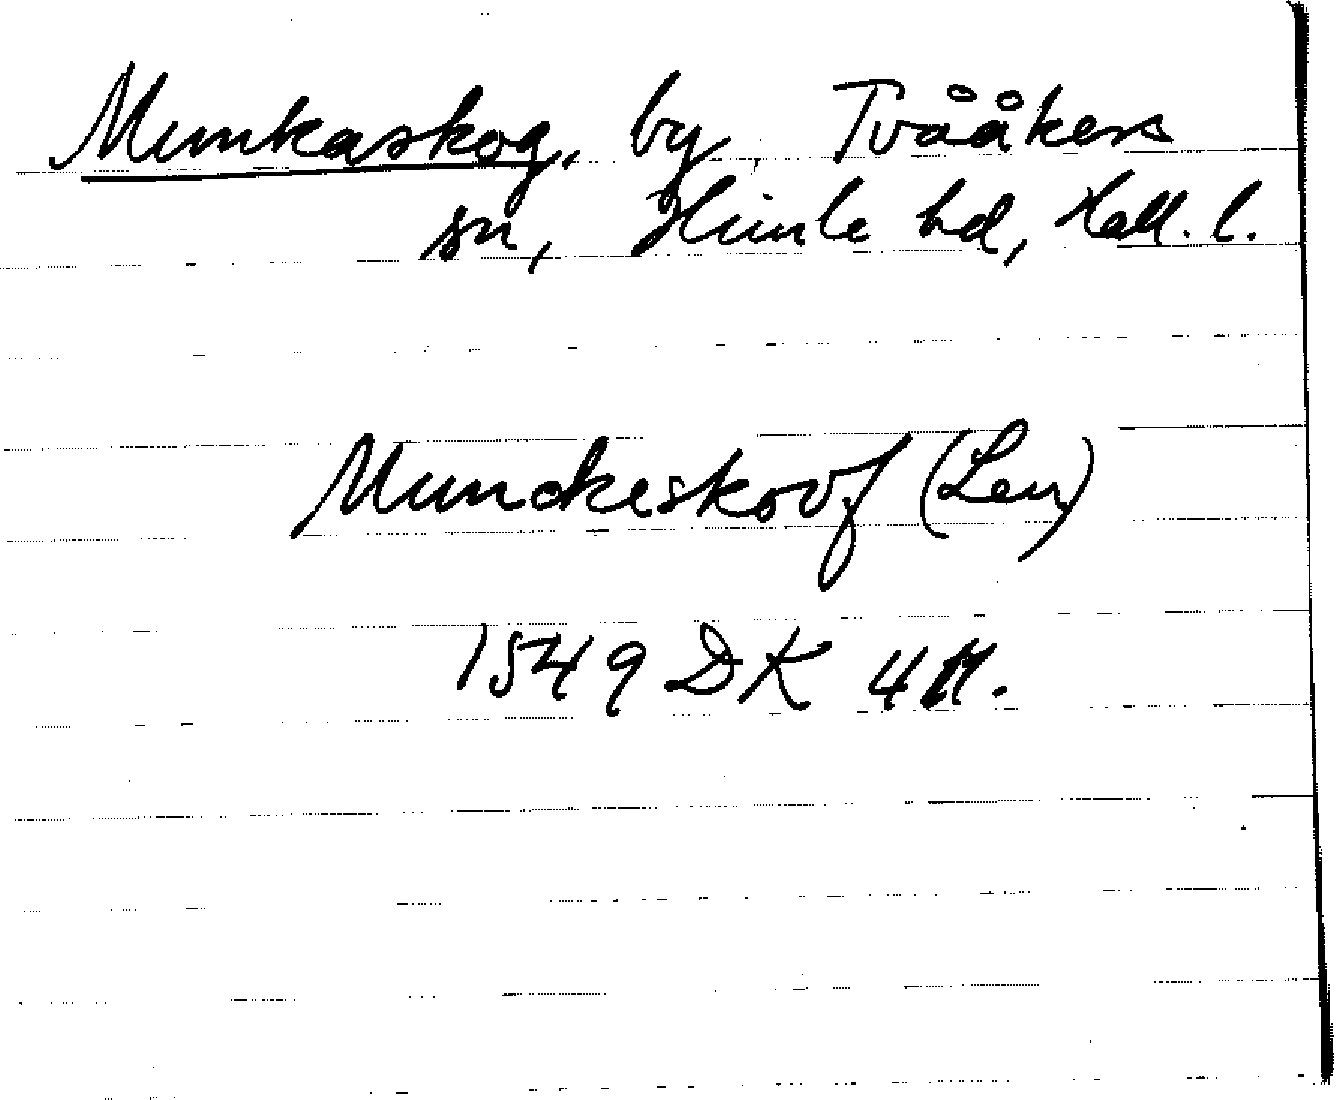 Munkaskog, by, Tvååkers
sn, Himle hd, Hall. l.
Munckeskovf (Len)
1549 DK 411.